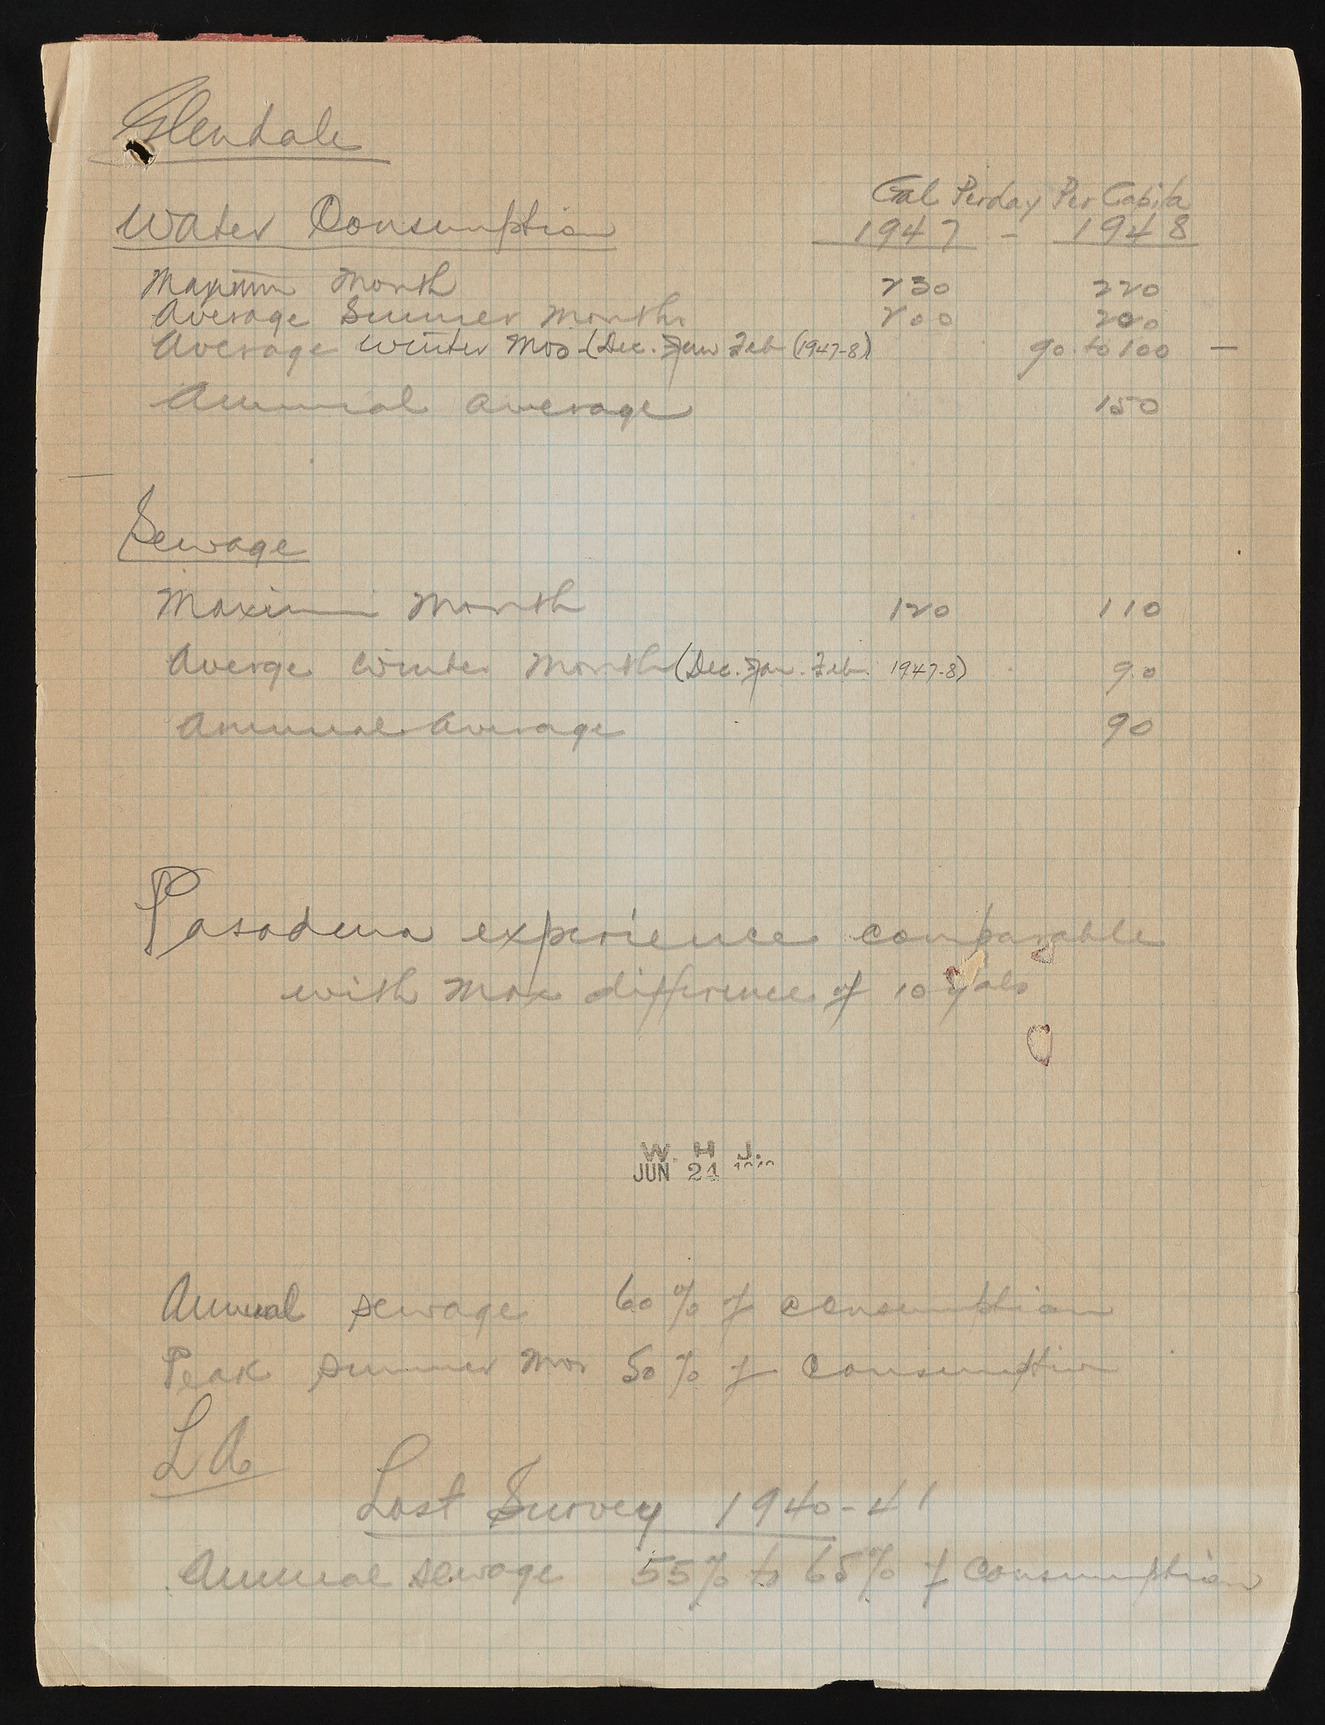 Glendale
Gal Per day Per Capita
Water Consumption 1947 - 1948
Maximum Month 230 220
Average Summer Months 200 200
Average Winter Mos (Dec. Jan Feb (1947-8) 90 to 100 —
Annual average 150
Sewage
Maximum Month 120 110
Averge Winter Month (Dec. Jan. Feb. 1947-8) 90
Annual Average 90
Pasadena experience comparable
with max difference of 10 gals
W. H. J.
JUN 24
Annual sewage 60% of consumption
Peak summer mos 50% of consumption
LA
Last Survey 1940-41
Annual sewage 55% to 65% of consumption